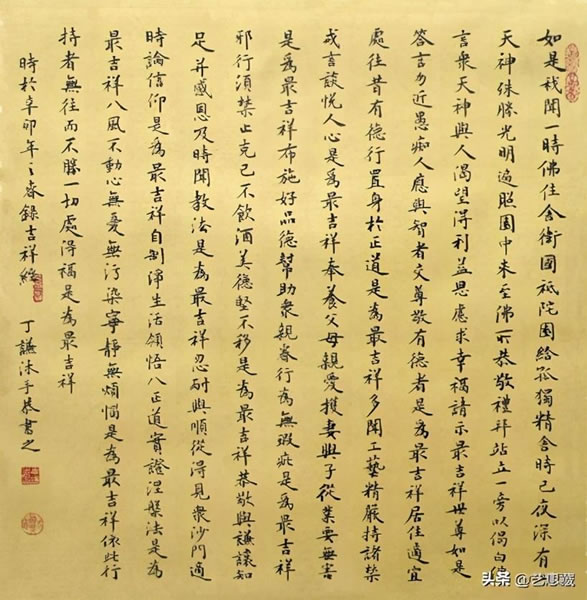 如是我聞一時佛住舍衛國祇陀園給孤獨精舍時已夜深有
天神殊勝光明遍照園中来至佛所恭敬禮拜站立一旁以偈白佛
言衆天神與人渴望得利益思慮求幸福請示最吉祥世尊如是
答言勿近愚痴人應與智者交尊敬有德者是為最吉祥居住適宜
處往昔有德行置身於正道是為最吉祥多聞工藝精嚴持諸禁
戒言談悦人心是為最吉祥奉養父母親愛護妻與子從業要無害
是為最吉祥布施好品德幫助衆親眷行為無瑕疵是為最吉祥
邪行須禁止克己不飲酒美德堅不移是為最吉祥恭敬與謙讓知
足并感恩及時聞教法是為最吉祥忍耐與順從得見衆沙門適
時論信仰是為最吉祥自制淨生活領悟八正道實證涅槃法是為
最吉祥八風不動心無憂無污染寧靜無煩惱是為最吉祥依此行
持者無往而不勝一切處得福是為最吉祥
時於辛卯年之春錄吉祥經 丁謙沐手恭書之
头条